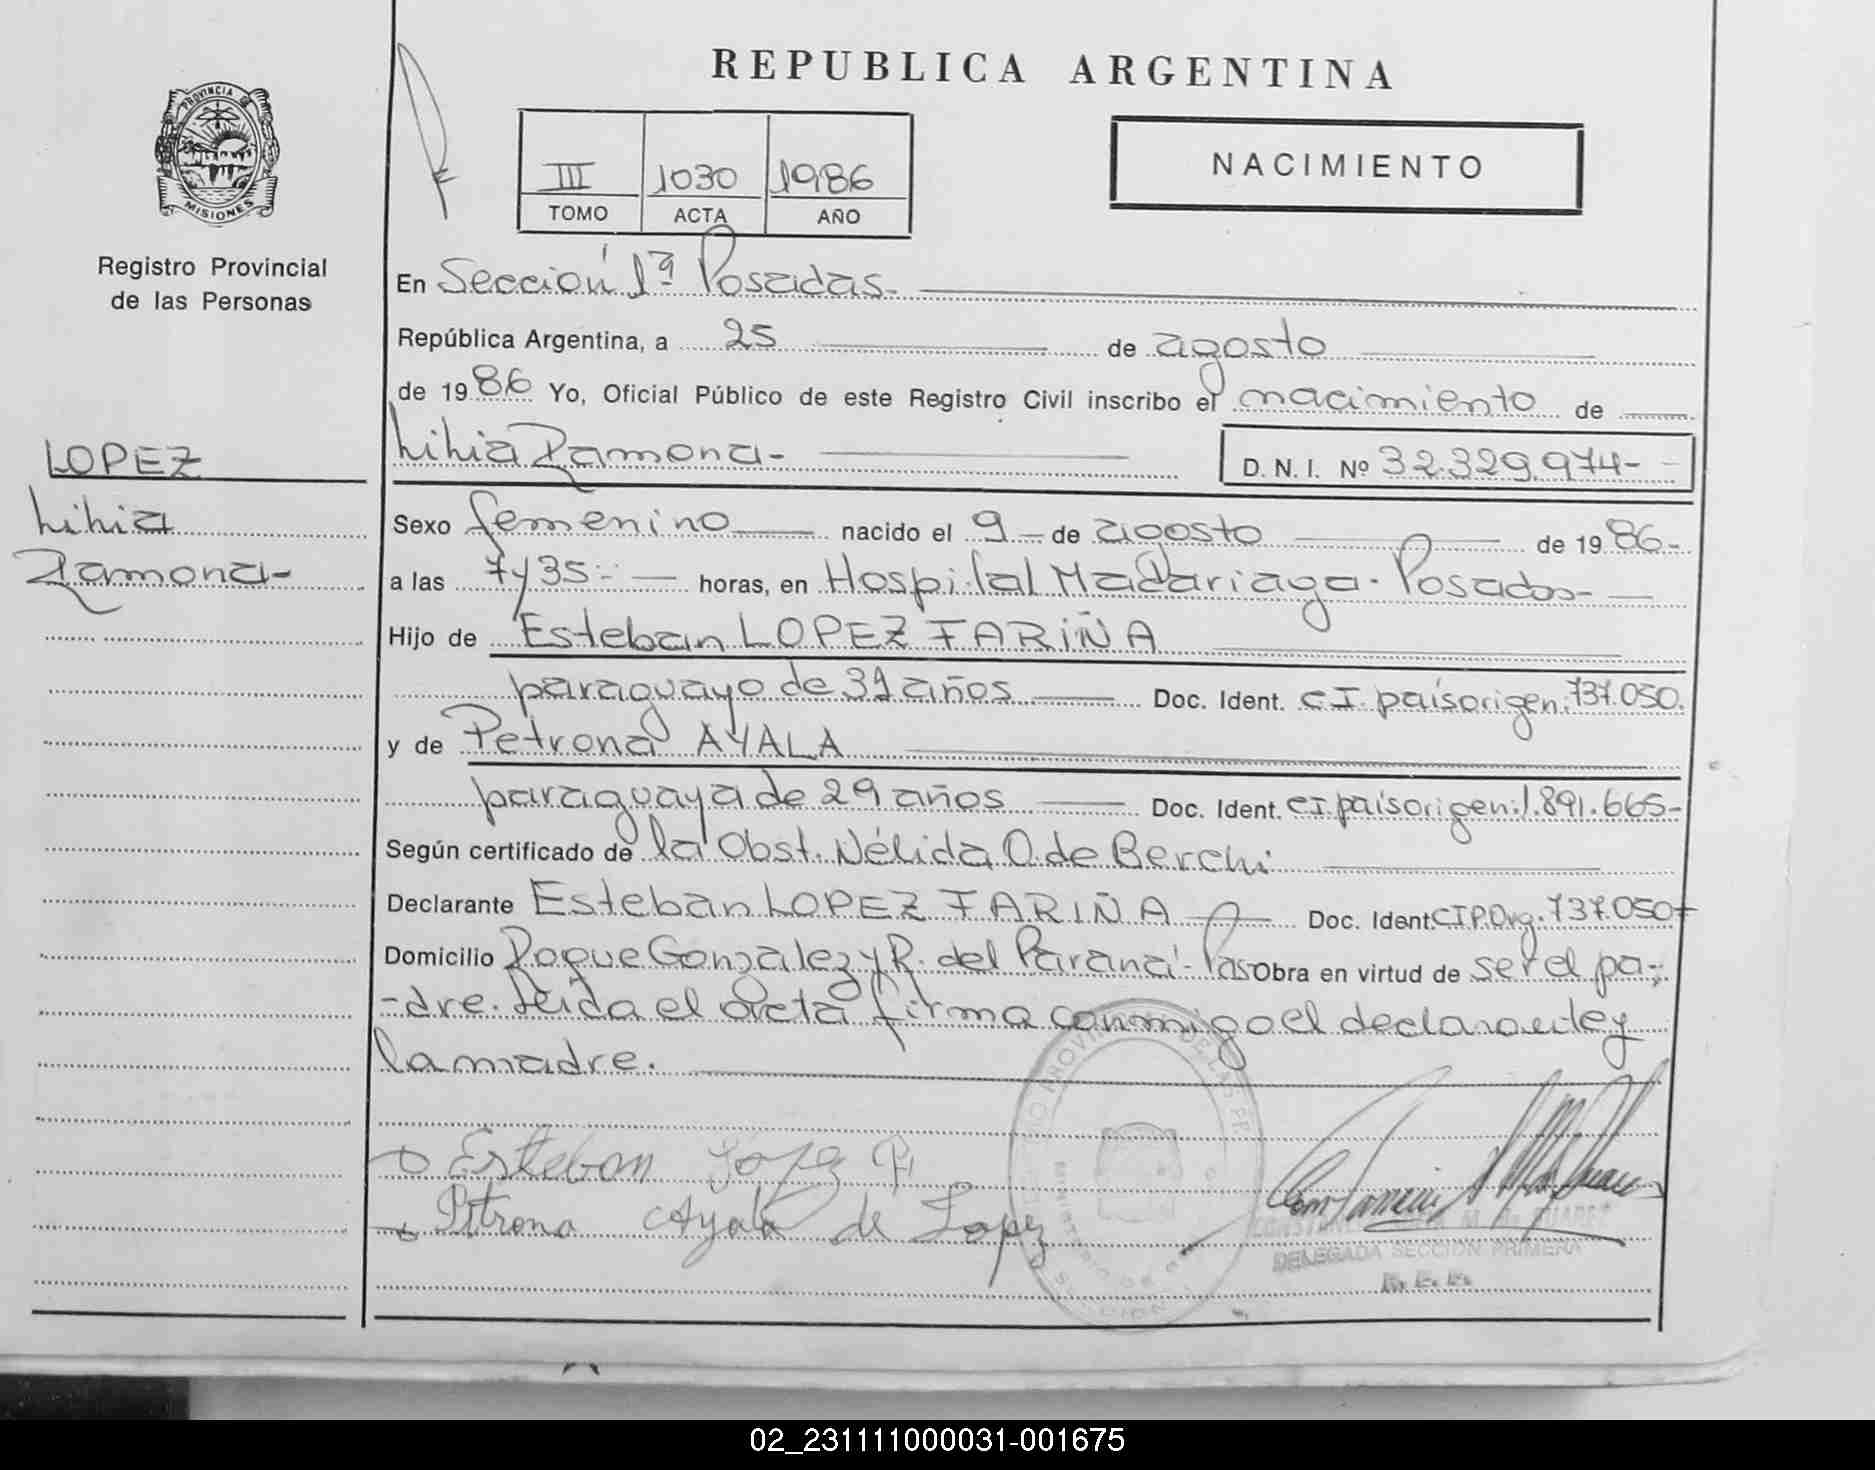 REPUBLICA ARGENTINA
PROVINCIA DE
MISIONES
Registro Provincial
de las Personas
III 1030 1986
TOMO ACTA AÑO
NACIMIENTO
En Sección 1ª Posadas.
República Argentina, a 25 de agosto
de 1986 Yo, Oficial Público de este Registro Civil inscribo el nacimiento de
Lilia Ramona-
D. N. I. Nº 32.329.974-
LOPEZ
Lilia
Ramona-
Sexo femenino nacido el 9 de agosto de 1986-
a las 7y35 horas, en Hospital Madariaga. Posadas-
Hijo de Esteban LOPEZ FARIÑA
paraguayo de 31 años Doc. Ident. C.I. país origen: 737.050.
y de Petrona AYALA
paraguaya de 29 años Doc. Ident. C.I. país origen: 1.891.665-
Según certificado de la Obst. Nélida O. de Berchi
Declarante Esteban LOPEZ FARIÑA Doc. Ident. C I P. Org. 737.050
Domicilio Roque Gonzalez y R. del Paraná- Pas Obra en virtud de ser el pa-
-dre. Leida el acta firma conmigo el declarante y
la madre.
Esteban Lopez F
Petrona Ayala de Lopez
M. de SUAREZ
DELEGADA SECCION PRIMERA
02_231111000031-001675